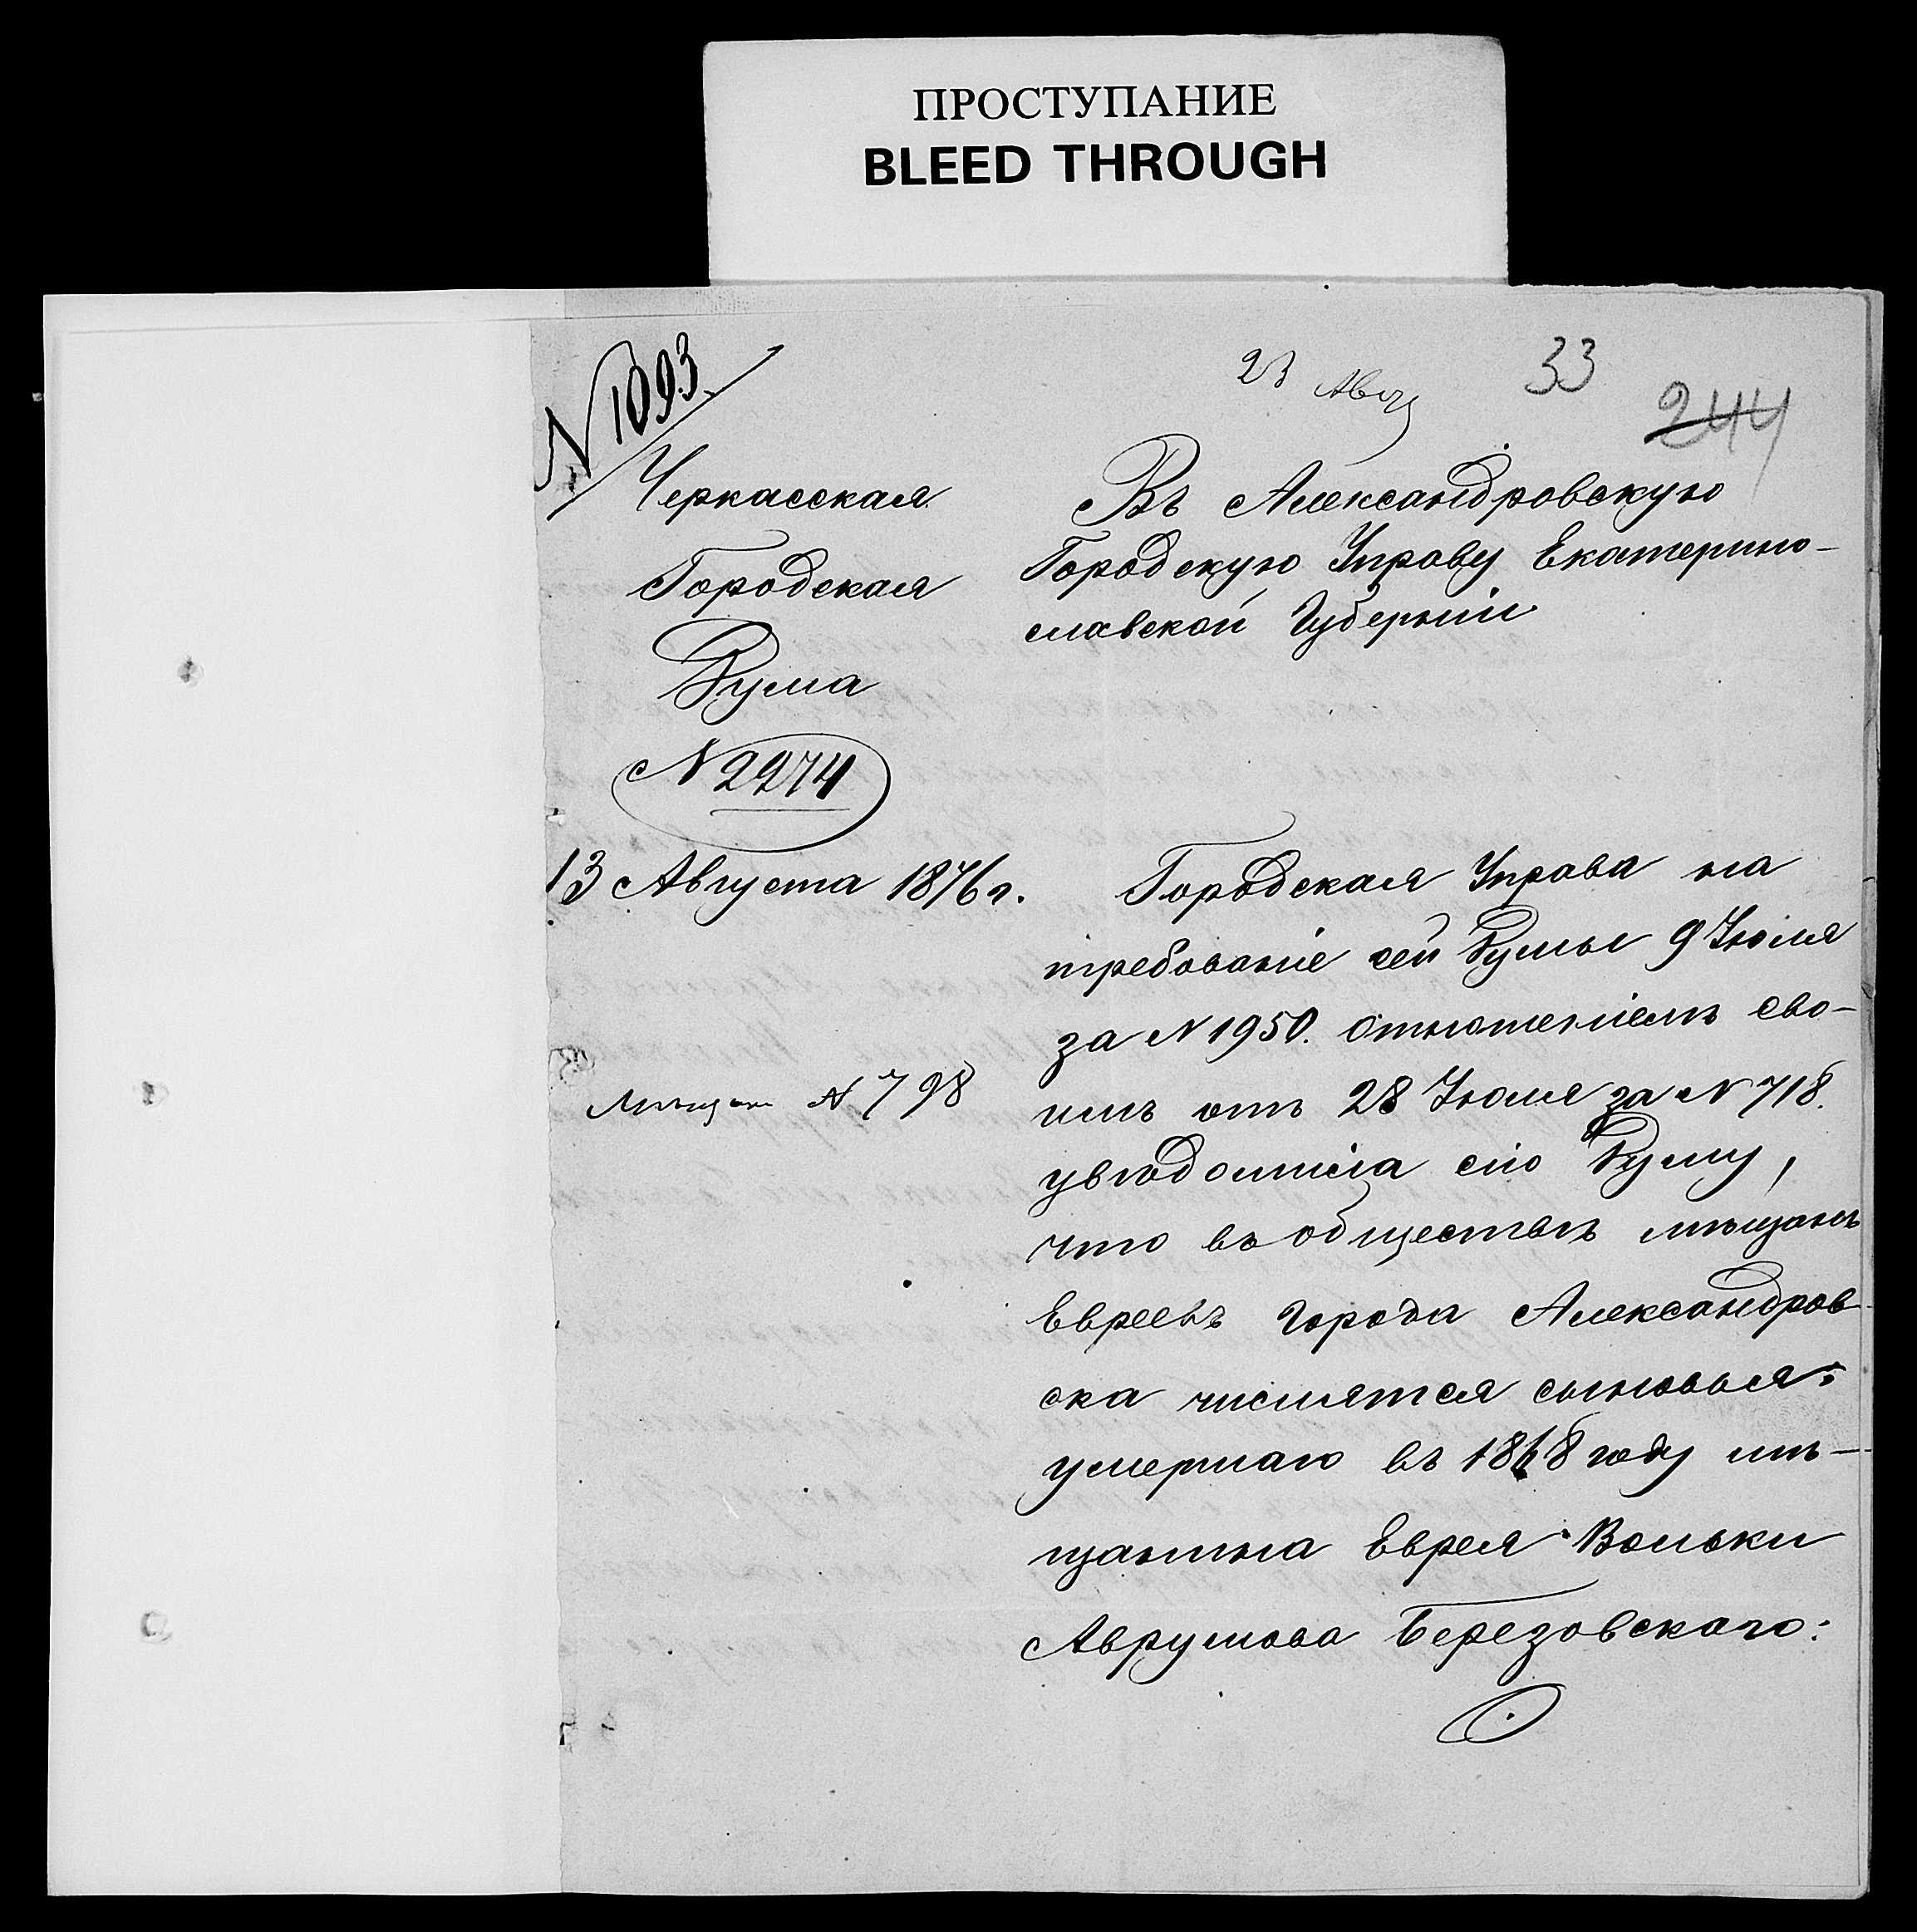 ПРОСТУПАНИЕ
BLEED THROUGH
N 1093
23 Авг
33
244
Черкасская
Городская
Дума
N 2274
13 Августа 1876 г.
Въ Александровскую
Городскую Управу Екатерино-
славской Губерніи
Городская Управа на
требованіе сей Думы 9 Іюля
за N 1950. отношеніемъ сво-
имъ отъ 28 Іюля за N 718.
увѣдомила сію Думу,
что въ обществѣ мѣщанъ
Евреевъ города Александров-
ска числятся сыновья:
умершаго въ 1868 году мѣ-
щанина Еврея Вольки
Аврумова Березовскаго:
N 798